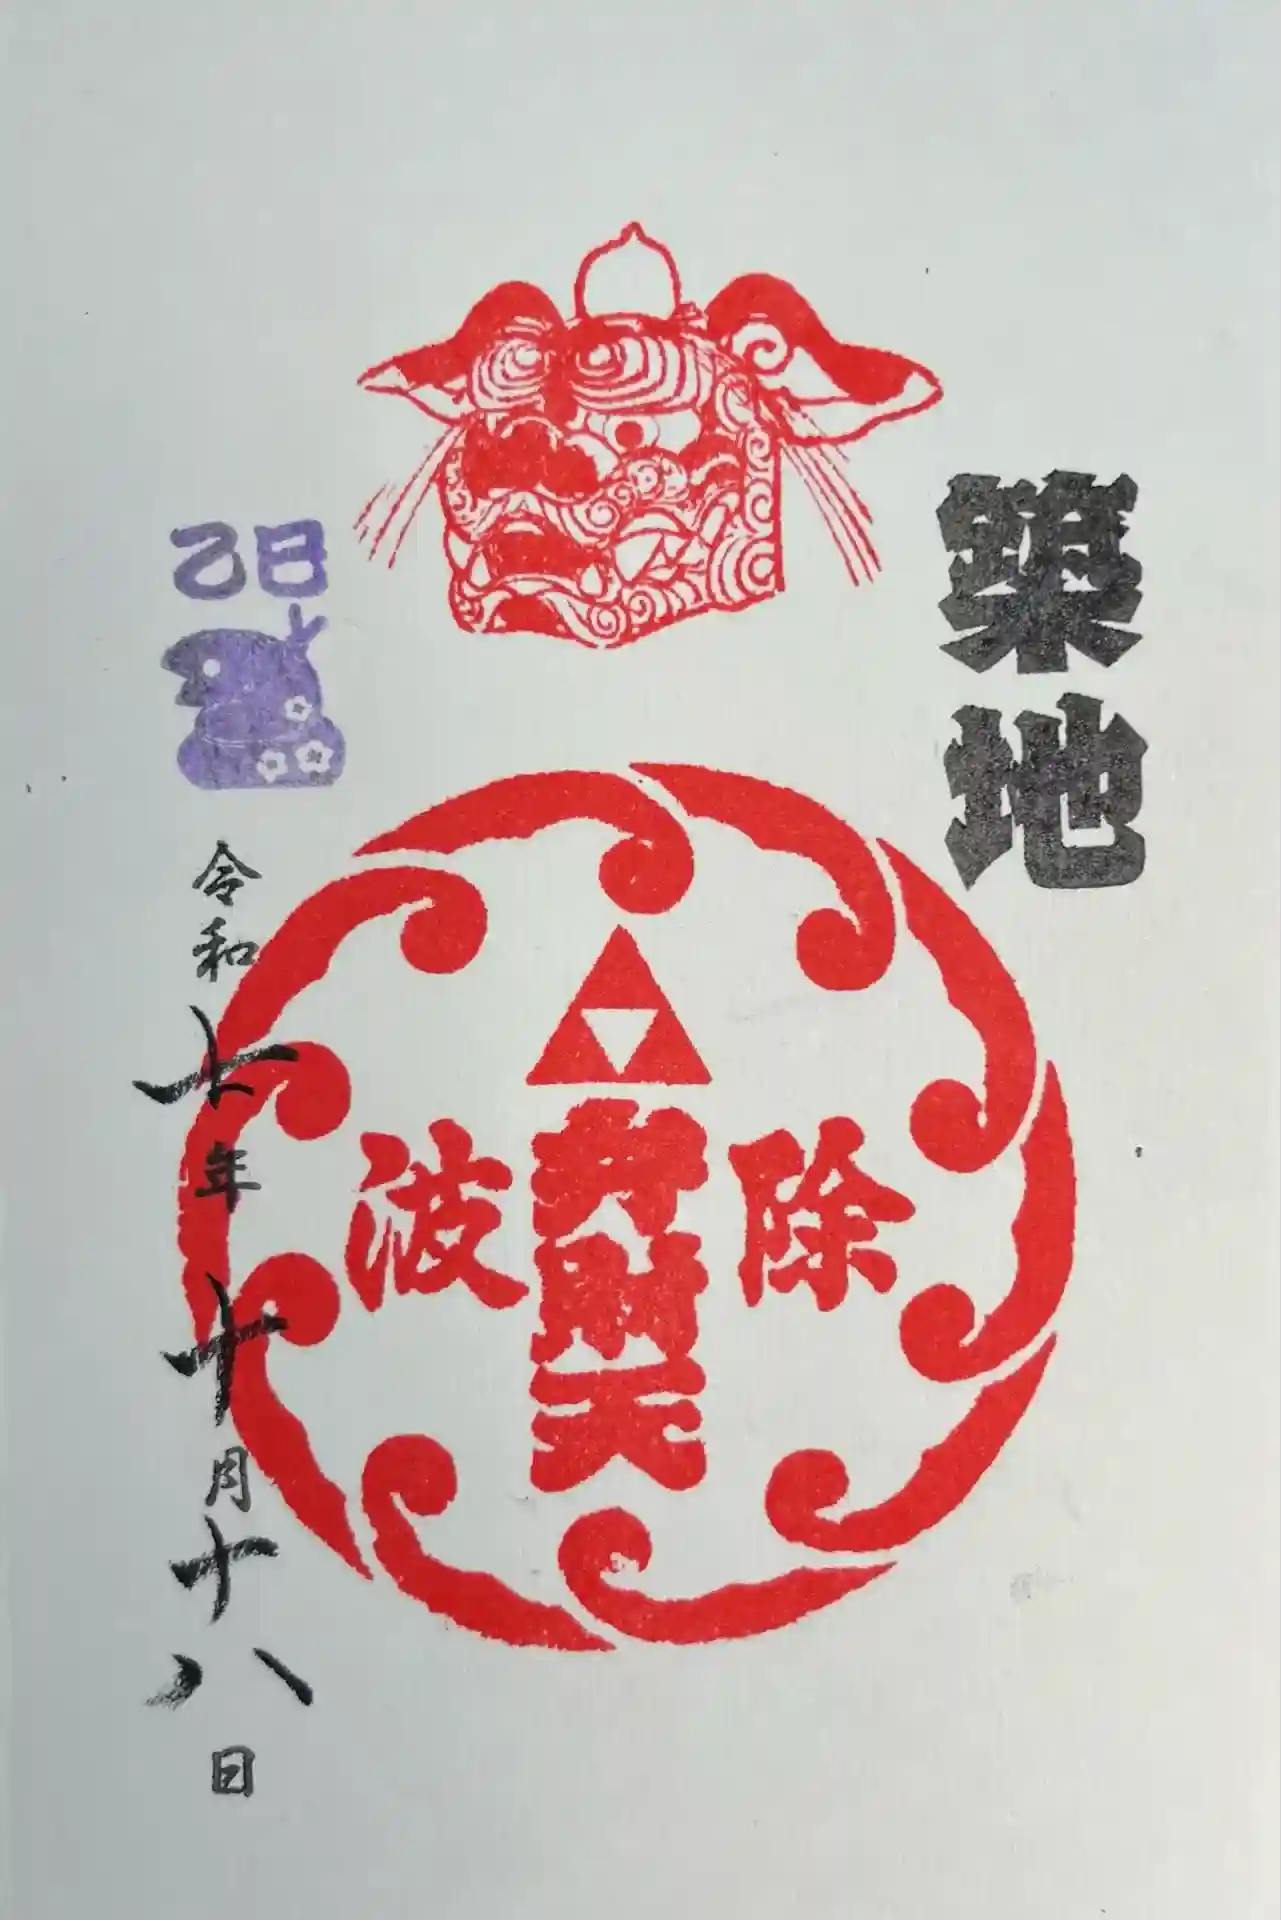 築地
除
弁財天
波
乙巳
令和七年十月十八日